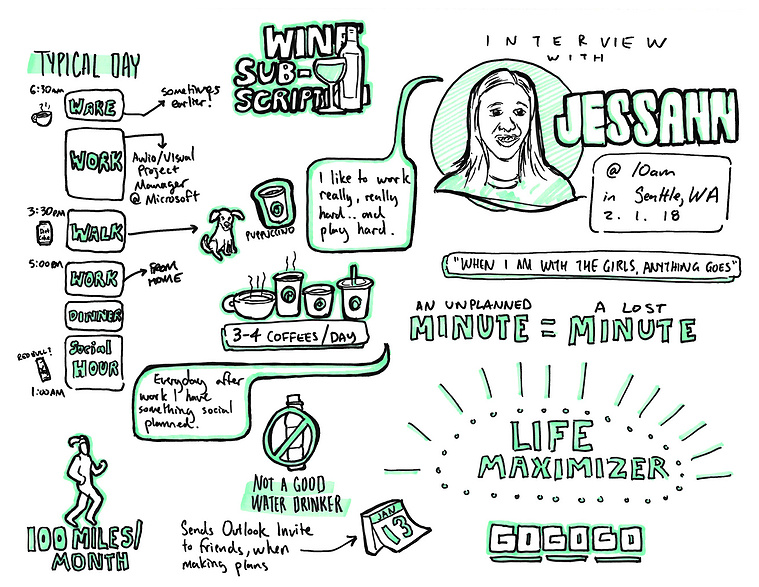 TYPICAL DAY
6:30am
WAKE
sometimes
earlier!
WORK
Audio/Visual
Project
Manager
@ Microsoft
3:30PM
WALK
PUPPUCCINO
5:00PM
WORK
FROM
HOME
DINNER
Social
HOUR
RED BULL?
1:00AM
WINE
SUB-
SCRIPTI
INTERVIEW
WITH
JESSANN
@ 10am
in Seattle, WA
2. 1. 18
I like to work
really, really
hard... and
play hard.
3-4 COFFEES/DAY
"WHEN I AM WITH THE GIRLS, ANYTHING GOES"
AN UNPLANNED
MINUTE
=
A LOST
MINUTE
Everyday after
work I have
something social
planned.
NOT A GOOD
WATER DRINKER
LIFE
MAXIMIZER
100 MILES/
MONTH
Sends Outlook Invite
to friends, when
making plans
JAN
13
GOGOGO